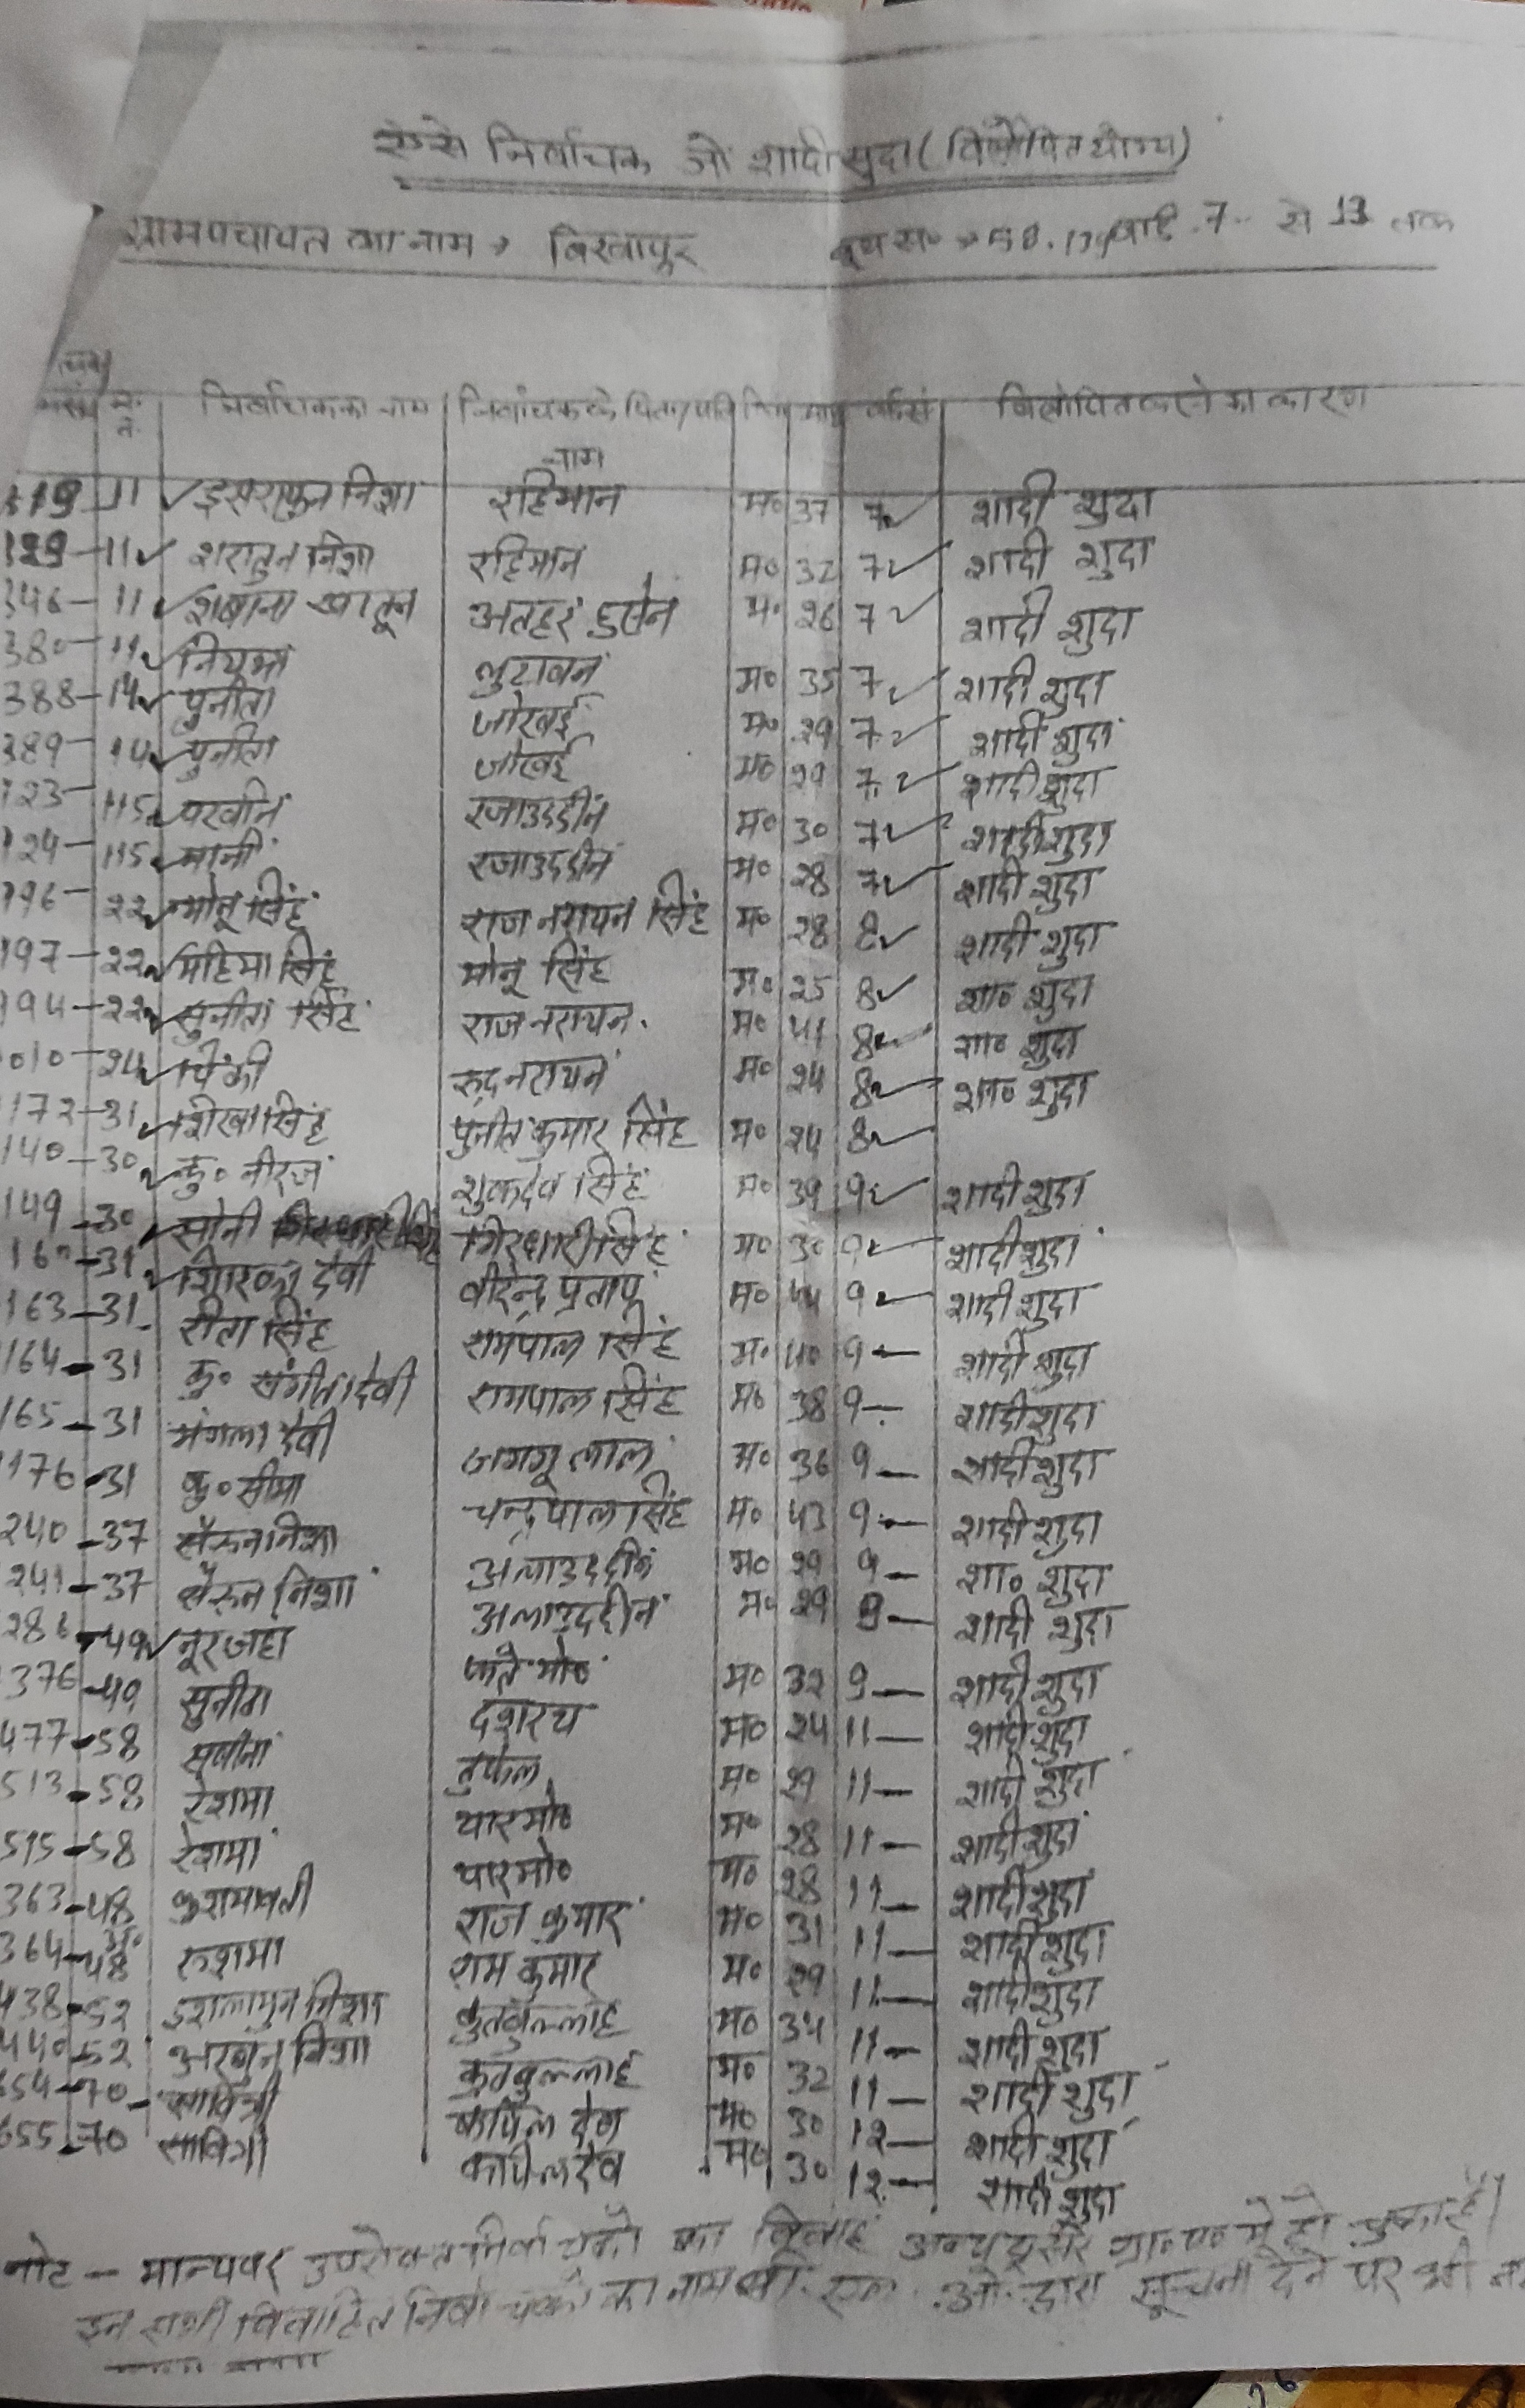 ऐसे निर्वाचक जो शादी सुदा (विलोपित योग्य)
ग्रामपंचायत का नाम → विरतापुर बूथ सं० → 58. वार्ड 7 से 13 तक
म. नं. निर्वाचकका नाम निर्वाचकके पिता/पति नाम वार्डसं विलोपितकरने का कारण
119 11 ✓ इसराफुन निशा रहिमान म० 37 7✓ शादी शुदा
129 - 11 ✓ शरातुन निशा रहिमान म० 32 7✓ शादी शुदा
346 - 11 ✓ शबाना खातून अतहर हुसेन म० 26 7✓ शादी शुदा
380 - 11 ✓ लुटावन म० 35 7✓ शादी शुदा
388 - 14 ✓ पुनीता जोखई म० 29 7✓ शादी शुदा
389 - 14 ✓ पुनीता जोखई म० 29 7✓ शादी शुदा
123 - 115 ✓ परवीन रजाउददीन म० 30 7✓ शादी शुदा
124 - 115 ✓ मानी रजाउददीन म० 28 7✓ शादी शुदा
196 - 22 ✓ मोनू सिंह राज नरायन सिंह म० 28 8✓ शादी शुदा
197 - 22 ✓ महिमा सिंह मोनू सिंह म० 25 8✓ शा० शुदा
194 - 22 ✓ सुनीता सिंह राज नरायन. म० 41 8✓ शा० शुदा
010 - 24 ✓ पिंकी रुदनरायन म० 24 8✓ शा० शुदा
172 - 31 ✓ शिखा सिंह पुनीत कुमार सिंह म० 24 8✓
140 - 30 ✓ कु० नीरज शुकदेव सिंह म० 39 9✓ शादी शुदा
149 - 30 ✓ सोनी गिरधारी सिंह म० 30 9✓ शादी शुदा
160 - 31 ✓ देवी वीरेन्द्र प्रताप म० 44 9✓ शादी शुदा
163 - 31 रीता सिंह रामपाल सिंह म० 40 9 - शादी शुदा
164 - 31 कु० संगीता देवी रामपाल सिंह म० 38 9 - शादी शुदा
165 - 31 मंगला देवी जगगू लाल म० 36 9 - शादी शुदा
176 - 31 कु० सीमा चन्द्रपाल सिंह म० 43 9 - शादी शुदा
240 - 37 सैरुन निशा अलाउददीन म० 29 9 - शा० शुदा
241 - 37 सैरुन निशा अलाउददीन म० 29 9 - शादी शुदा
286 - 49 ✓ नूरजहा फते मो० म० 32 9 - शादी शुदा
376 - 49 सुनीता दशरथ म० 24 11 - शादी शुदा
477 - 58 सबीना तुफेल म० 29 11 - शादी शुदा
513 - 58 रेशमा यारमो० म० 28 11 - शादी शुदा
515 - 58 रेशमा यारमो० म० 28 11 - शादी शुदा
363 - 48 कुशमावती राज कुमार म० 31 11 - शादी शुदा
364 - 48 रुशमा राम कुमार म० 29 11 - शादी शुदा
438 - 52 इशलामुन निशा कुतबुल्लाह म० 34 11 - शादी शुदा
440 - 52 निशा कुतबुल्लाह म० 32 11 - शादी शुदा
654 - 70 - सावित्री कपिल देव म० 30 12 - शादी शुदा
655 - 70 सावित्री कपिलदेव म० 30 12 - शादी शुदा
नोट - मान्यवर उपरोक्त निर्वाचकों का विवाह अन्य दूसरे ग्रा० प० में हो चुका है।
इन सभी विवाहित निर्वाचकों का नाम बी. एल. ओ. द्वारा सूचना देने पर भी